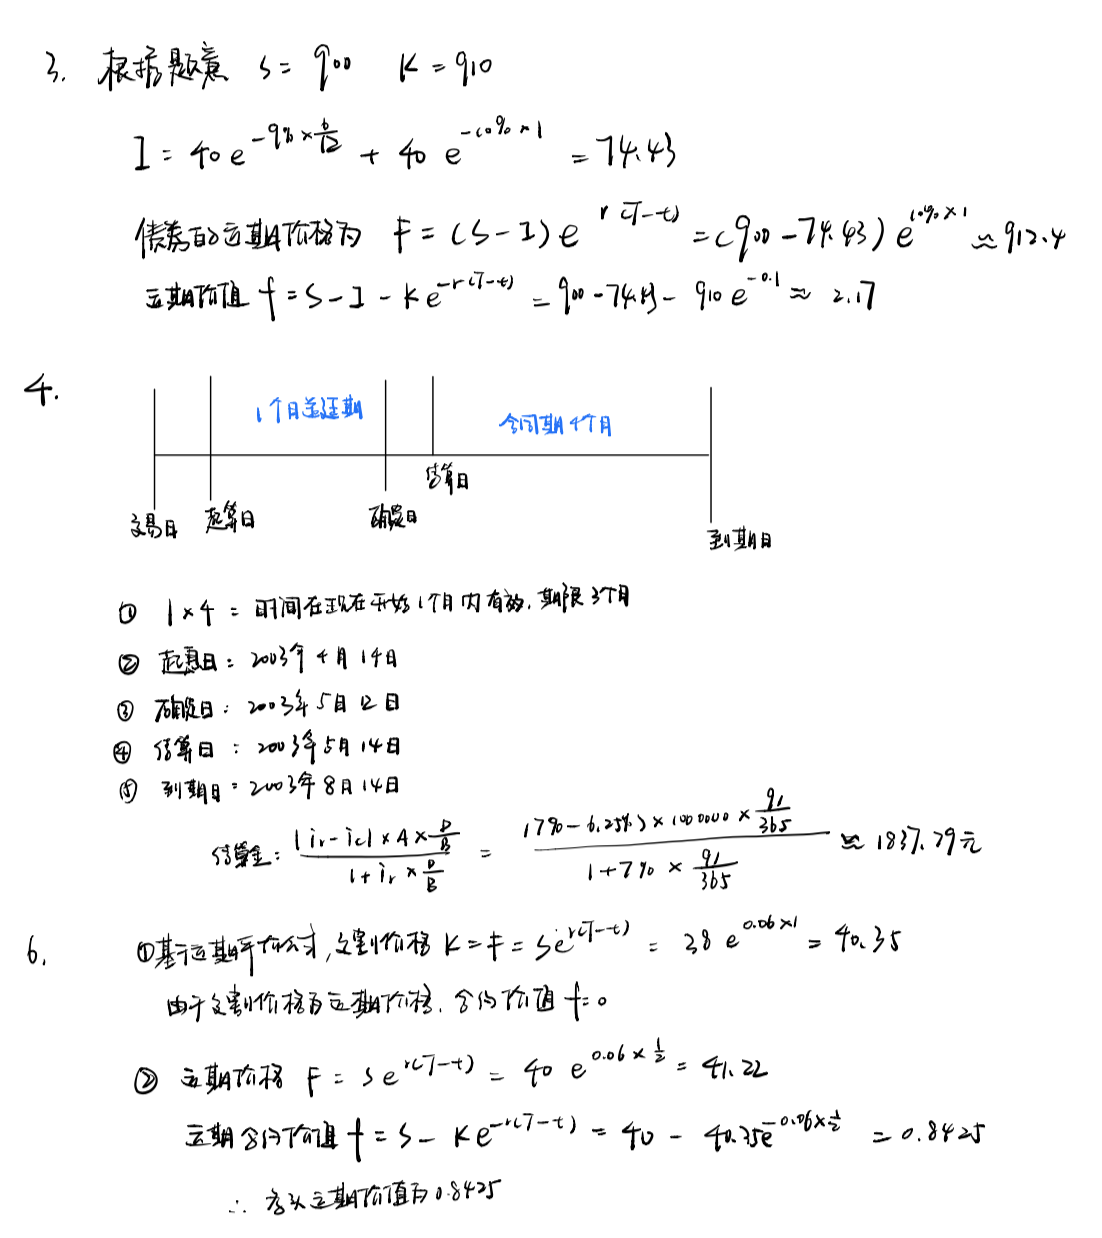 3. 根据题意 S = 900 K = 910
I = 40e^{-9%×6/12} + 40e^{-10%×1} = 74.43
债券的远期价格为 F = (S-I)e^{r(T-t)} = (900-74.43)e^{10%×1} ≈ 912.4
远期价值 f = S-I-Ke^{-r(T-t)} = 900-74.43-910e^{-0.1} ≈ 2.17
4.
1个月递延期
合同期4个月
交易日 起算日 确定日 结算日 到期日
① 1×4 = 时间在现在开始1个月内有效,期限3个月
② 起息日: 2003年4月14日
③ 确定日: 2003年5月12日
④ 结算日: 2003年5月14日
⑤ 到期日: 2003年8月14日
结算金: |i_r-i_c|×A×D/B / 1+i_r×D/B = (7%-6.25%)×1000000×91/365 / 1+7%×91/365 ≈ 1837.79元
6. ①基于远期平价公式,交割价格 K=F=Se^{r(T-t)} = 38e^{0.06×1} = 40.35
由于交割价格为远期价格,合约价值 f=0
② 远期价格 F = Se^{r(T-t)} = 40e^{0.06×1/2} = 41.22
远期合约价值 f = S-Ke^{-r(T-t)} = 40-40.35e^{-0.06×1/2} = 0.8425
∴ 多头远期价值为0.8425